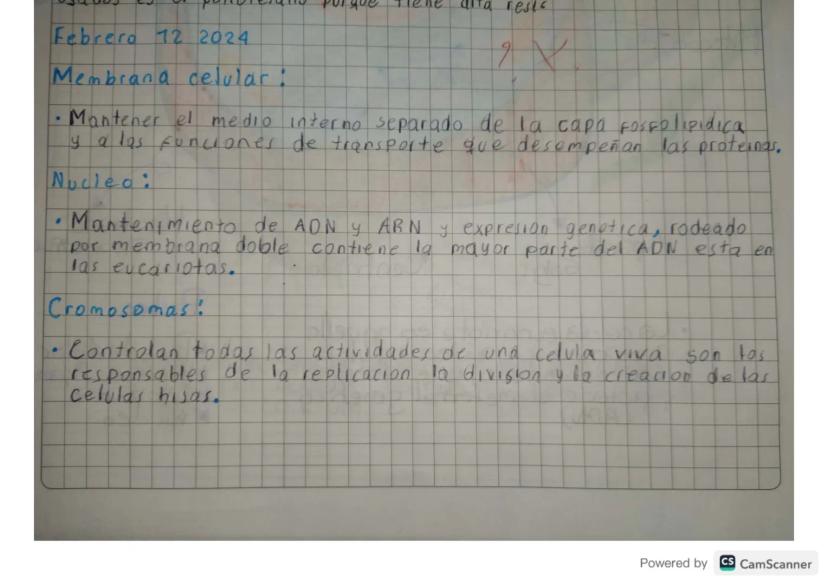 porque tiene alta resis
Febrero 12 2024
Membrana celular:
• Mantener el medio interno separado de la capa fosfolipidica
y a las funciones de transporte que desempeñan las proteinas.
Nucleo:
• Mantenimiento de ADN y ARN y expresion genetica, rodeado
por membrana doble contiene la mayor parte del ADN esta en
las eucariotas.
Cromosomas:
• Controlan todas las actividades de una celula viva son los
responsables de la replicacion la division y la creacion de las
celulas hijas.
Powered by CS CamScanner